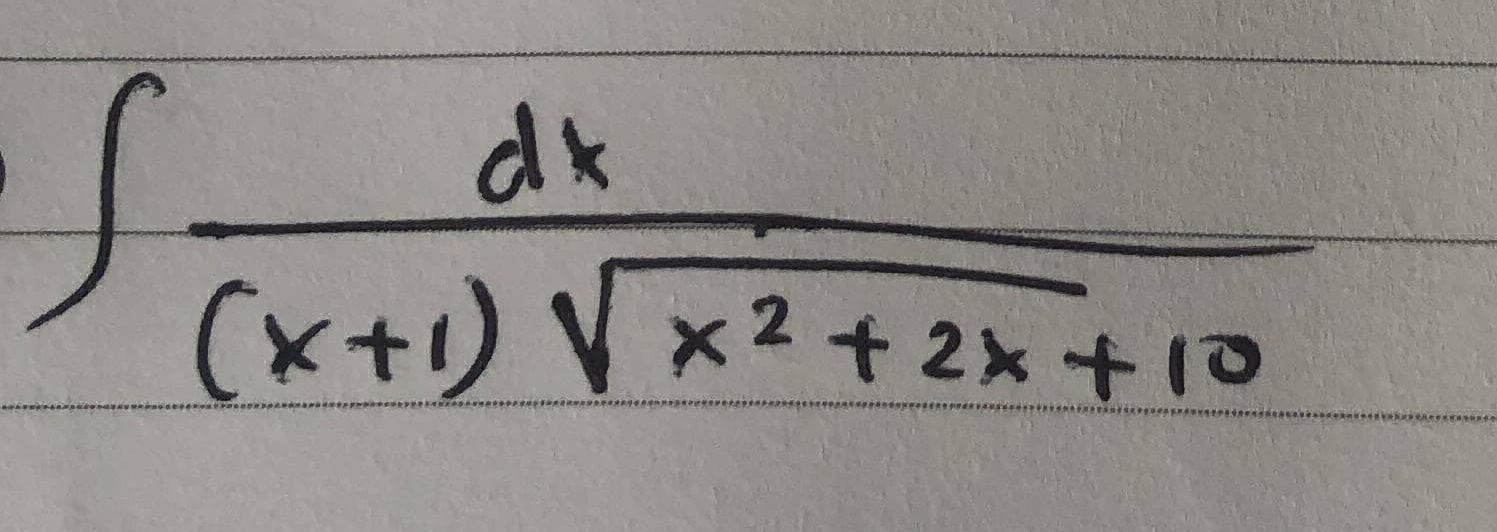 ∫ dx
(x+1) √x² + 2x + 10